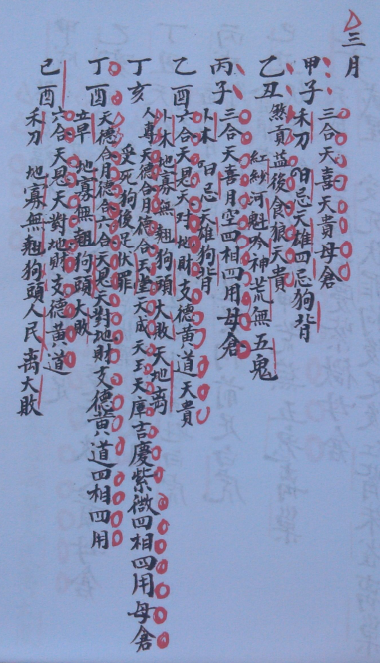 三月
甲子 三合天喜天貴母倉
禾刀 陌忌天雄四忌狗背
乙丑 煞貢益後食狼天貴
紅紗河魁吟神荒無五鬼
丙子 三合天喜月空四相四用母倉
卜木 陌忌天雄狗背
乙酉 六合天恩天对地財支德黄道天貴
卜木地寡無翹狗頭大敗天地离
丁亥 人尊天德合月德合玉堂天成天玉天庫吉慶紫微四相四用母倉
受死狗後足伏罪
丁酉 天德合月德合六合天恩天對地財支德黄道四相四用
立早 地寡無翹狗頭大敗
己酉 六合天恩天對地財支德黄道
禾刀 地寡無翹狗頭人民离大敗